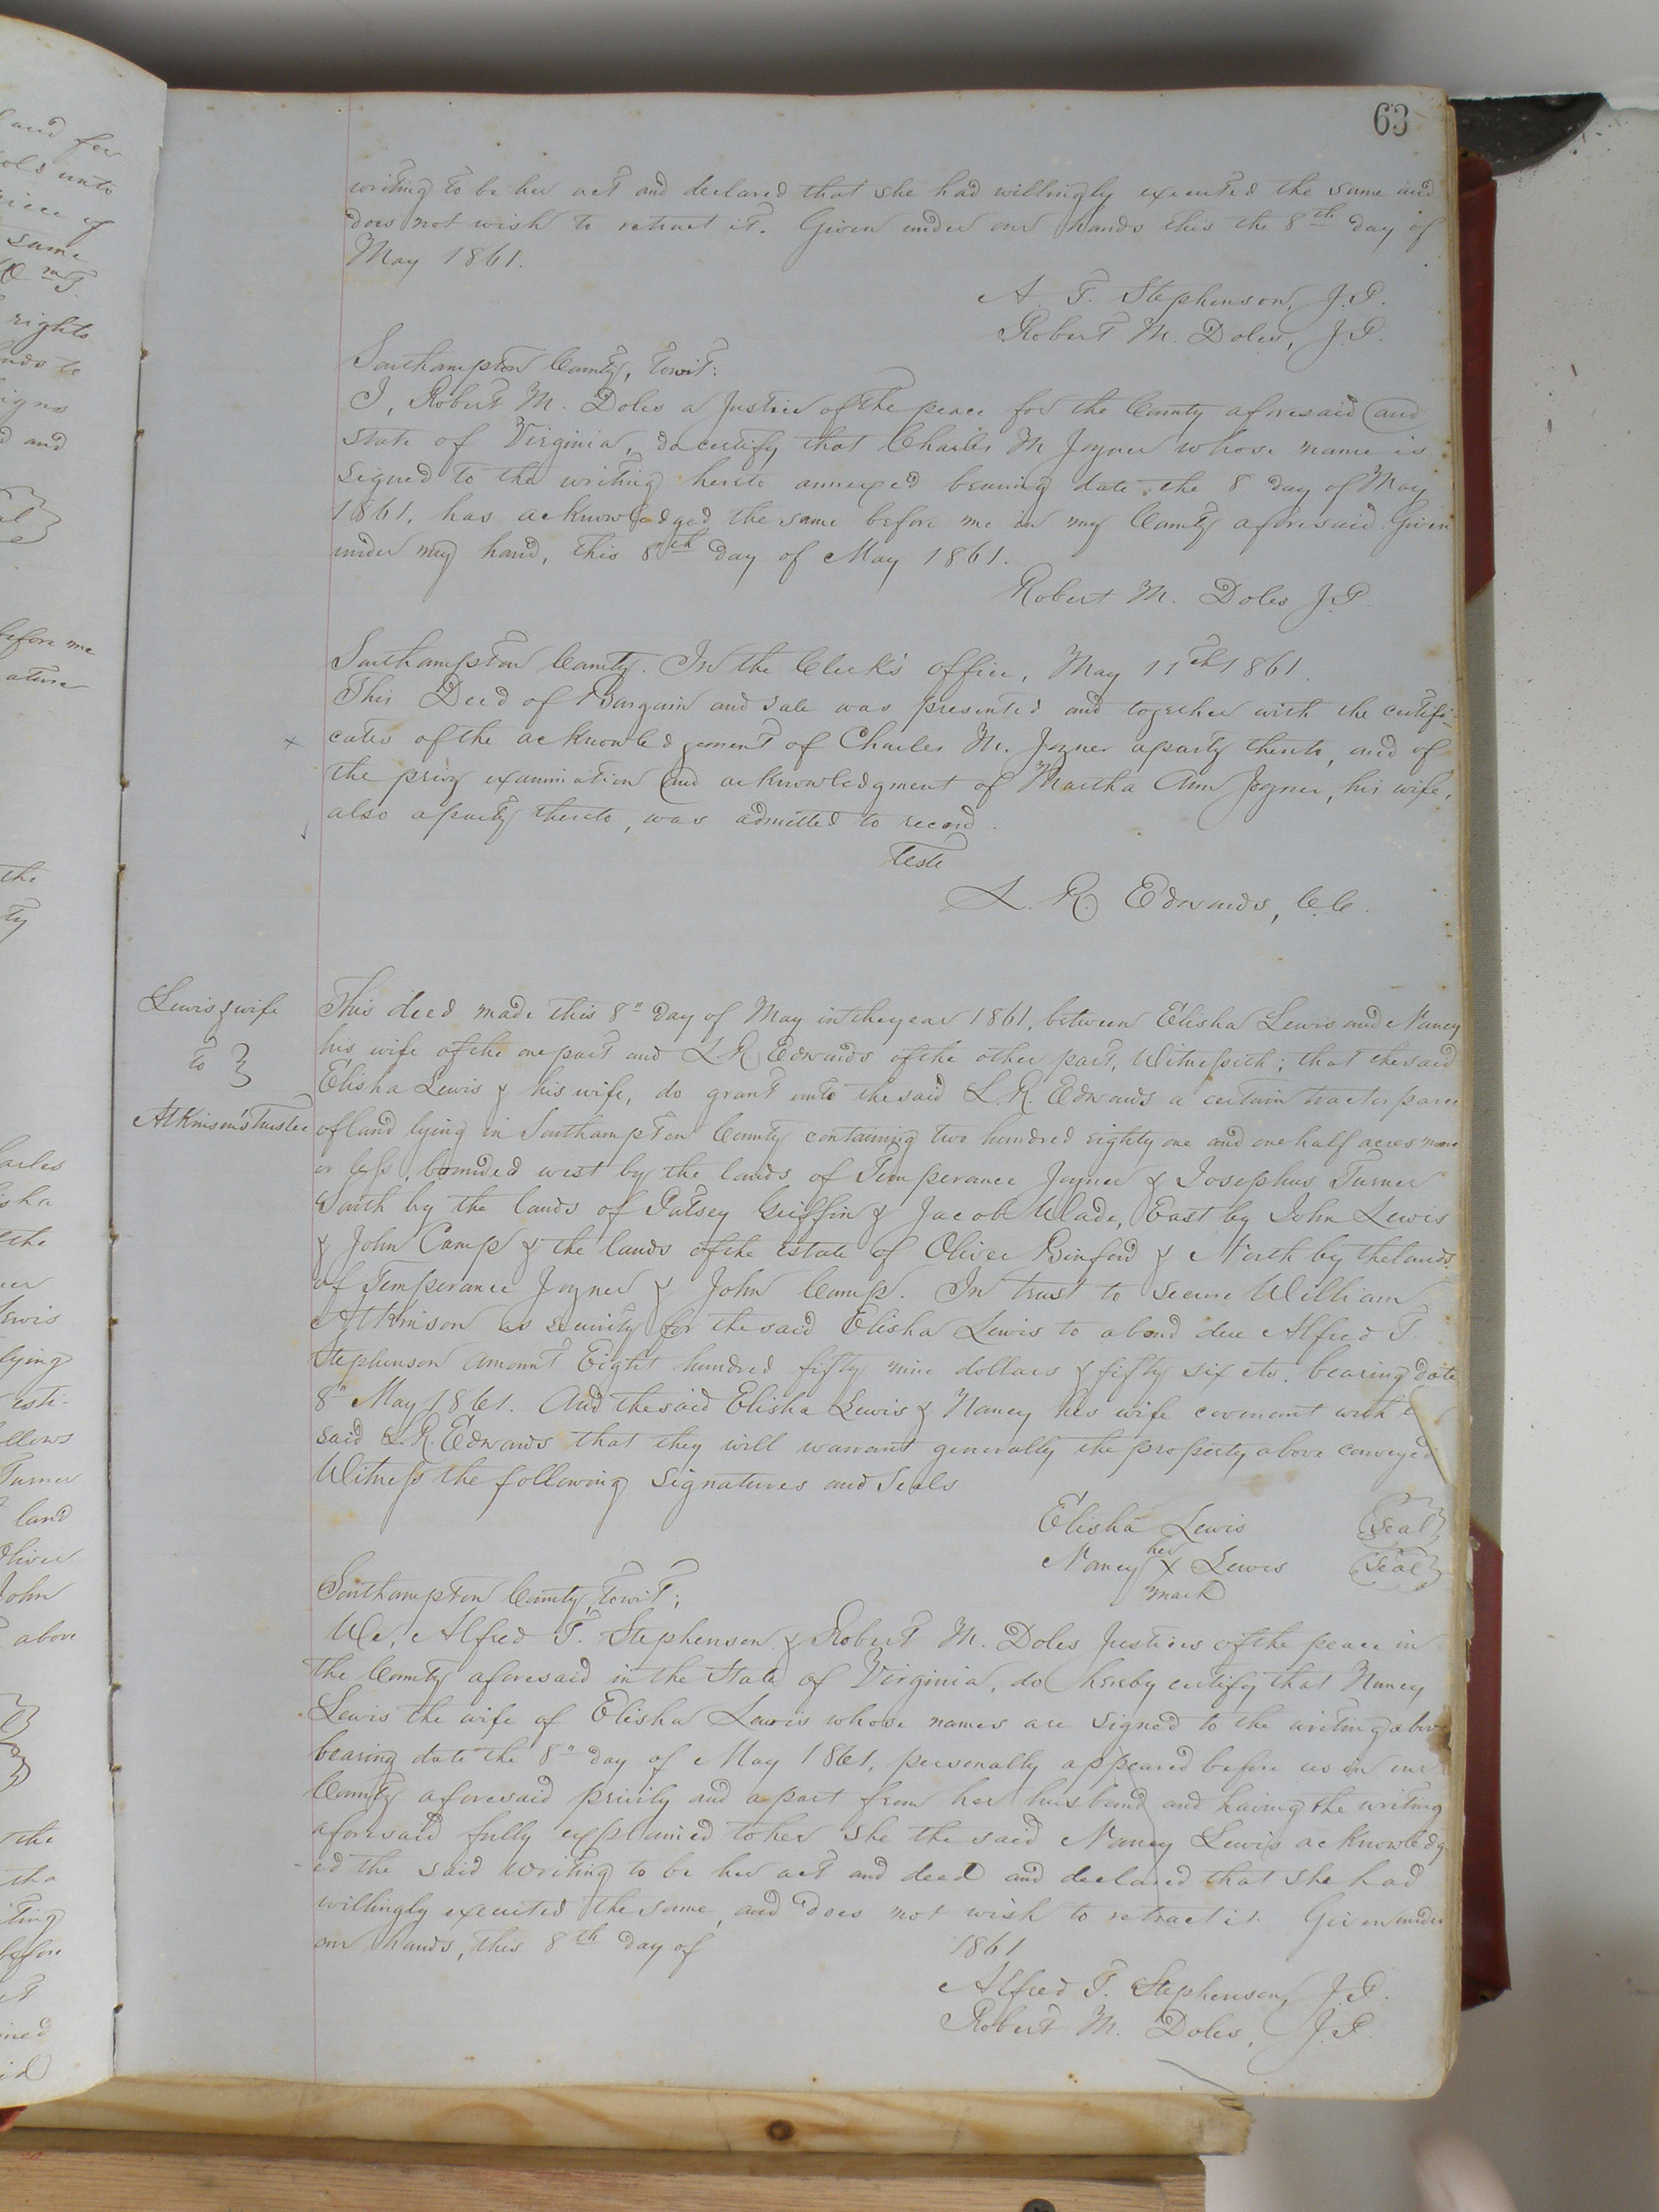 63
writing to be her act and declared that she had willingly executed the same and
does not wish to retract it. Given under our hands this the 8th day of
May 1861.
A. T. Stephenson, J.P.
Robert M. Doles, J.P.
Southampton County, towit:
I, Robert M. Doles a Justice of the peace for the County aforesaid and
state of Virginia, do certify that Charles M Joyner whose name is
signed to the writing hereto annexed bearing date the 8 day of May
1861, has acknowledged the same before me in my County aforesaid. Given
under my hand, this 8th day of May 1861.
Robert M. Doles J.P.
Southampton County. In the Clerk's office, May 11th 1861.
This Deed of Bargain and sale was presented and together with the certifi-
cates of the acknowledgement of Charles M. Joyner a party thereto, and of
the privy examination and acknowledgment of Martha Ann Joyner, his wife,
also a party thereto, was admitted to record.
Teste
L. R. Edwards, C.C.
Lewis & wife
to }
Atkinson's trustee
This deed made this 8" day of May in the year 1861, between Elisha Lewis and Nancy
his wife of the one part and L. R. Edwards of the other part, Witnesseth; that the said
Elisha Lewis & his wife, do grant unto the said L. R. Edwards a certain tract or parcel
of land lying in Southampton County containing two hundred eighty one and one half acres more
or less, bounded west by the lands of Temperance Joyner & Josephus Turner
South by the lands of Patsey Griffin & Jacob Wade, East by John Lewis
& John Camp & the lands of the estate of Oliver Binford & North by the lands
of Temperance Joyner & John Camp. In trust to secure William
Atkinson as security for the said Elisha Lewis to a bond due Alfred T.
Stephenson amount Eight hundred fifty nine dollars & fifty six cts. bearing date
8" May 1861. And the said Elisha Lewis & Nancy his wife covenant with
said L. R. Edwards that they will warrant generally the property above conveyed
Witness the following signatures and Seals
Elisha Lewis (Seal)
Nancy her X mark Lewis (Seal)
Southampton County, towit;
We, Alfred T. Stephenson & Robert M. Doles Justices of the peace in
the County aforesaid in the State of Virginia, do hereby certify that Nancy
Lewis the wife of Elisha Lewis whose names are signed to the writing above
bearing date the 8" day of May 1861, personally appeared before us in our
County aforesaid privily and apart from her husband and having the writing
aforesaid fully explained to her she the said Nancy Lewis acknowledg-
-ed the said writing to be her act and deed and declared that she had
willingly executed the same, and does not wish to retract it. Given under
our hands, this 8th day of 1861
Alfred T. Stephenson, J.P.
Robert M. Doles, J.P.